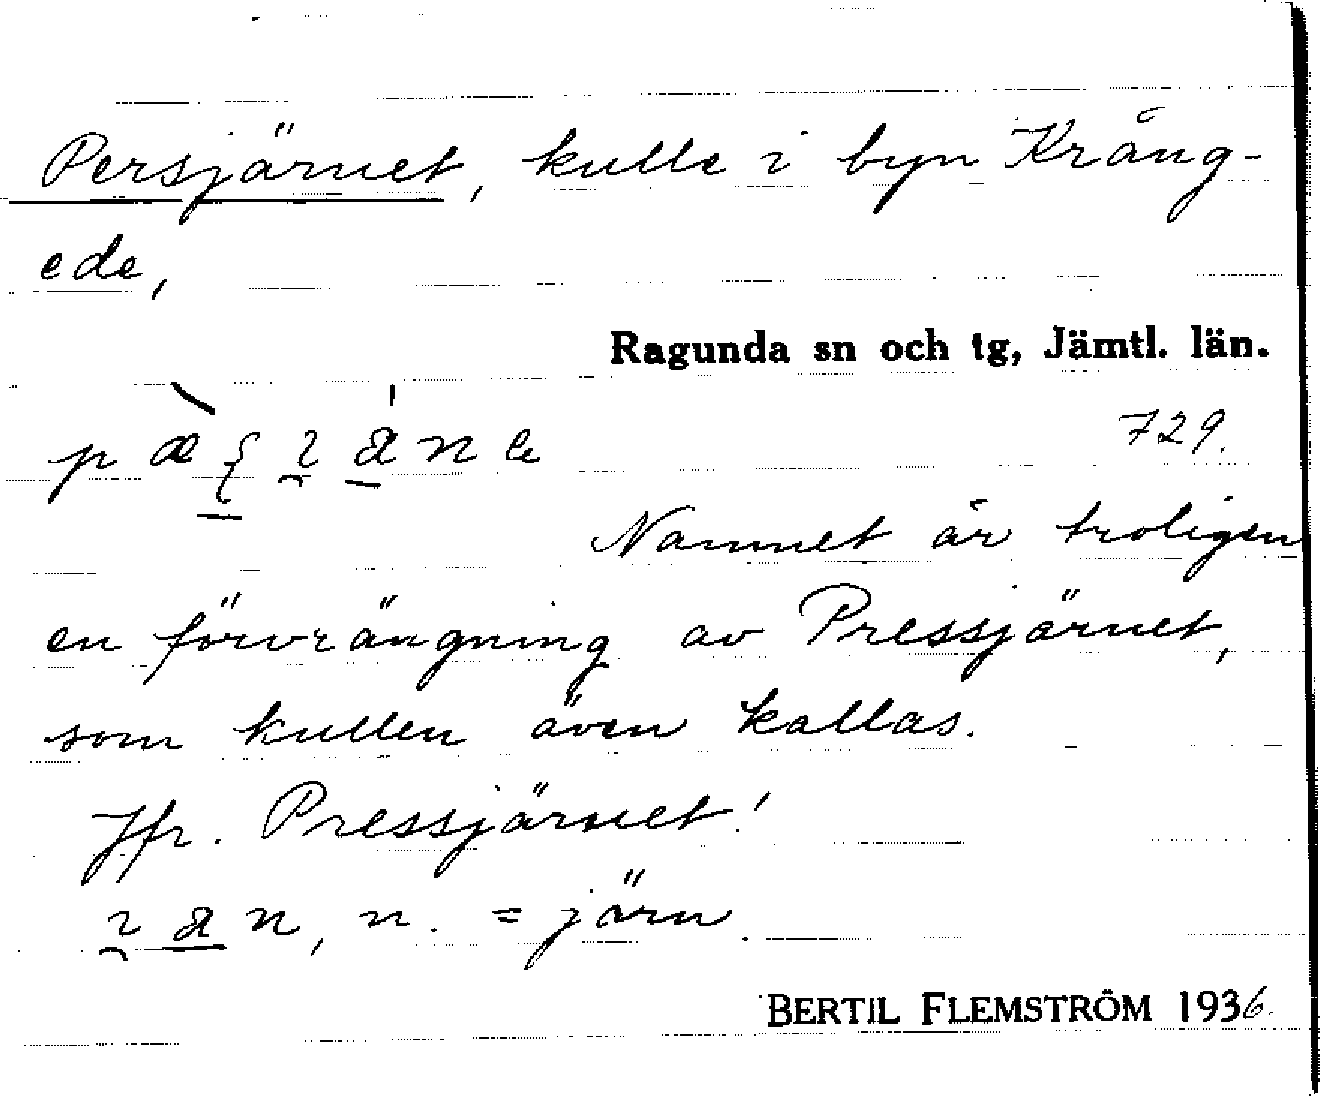 Persjärnet, kulle i byn Kräng-
ede,
Ragunda sn och tg, Jämtl. län.
729.
Namnet är troligen
en förvrängning av Pressjärnet,
som kullen även kallas.
Jfr. Pressjärnet!
n. = järn.
BERTIL FLEMSTRÖM 1936.